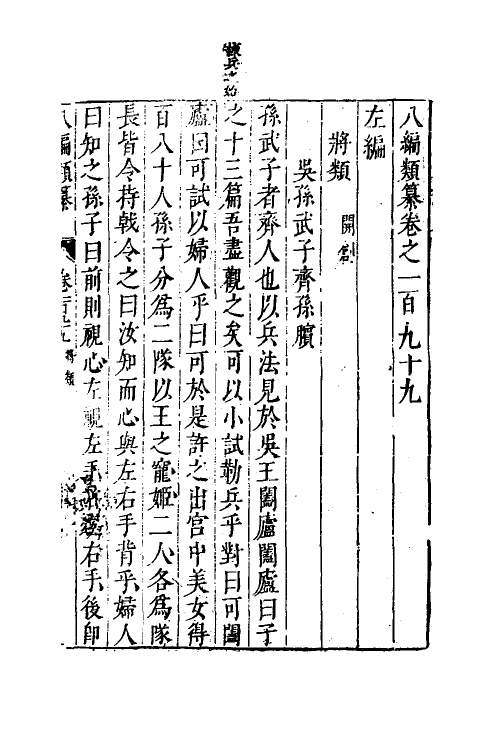 八編類纂卷之一百九十九
左編
將類 開創
吳孫武子齊孫臏
孫武子者齊人也以兵法見於吳王闔廬闔廬曰子
之十三篇吾盡觀之矣可以小試勒兵乎對曰可闔
廬曰可試以婦人乎曰可於是許之出宮中美女得
百八十人孫子分為二隊以王之寵姬二人各為隊
長皆令持戟令之曰汝知而心與左右手背乎婦人
曰知之孫子曰前則視心左視左手右視右手後即
八編類纂 卷一百九十九 將類